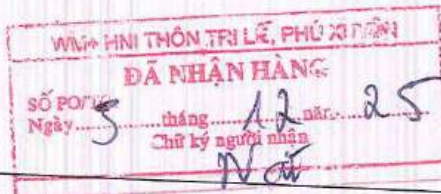 WM+ HNI THÔN TRI LỄ, PHÚ XUYÊN
ĐÃ NHẬN HÀNG
SỐ PO/
Ngày 5 tháng 12 năm 25
Chữ ký người nhận